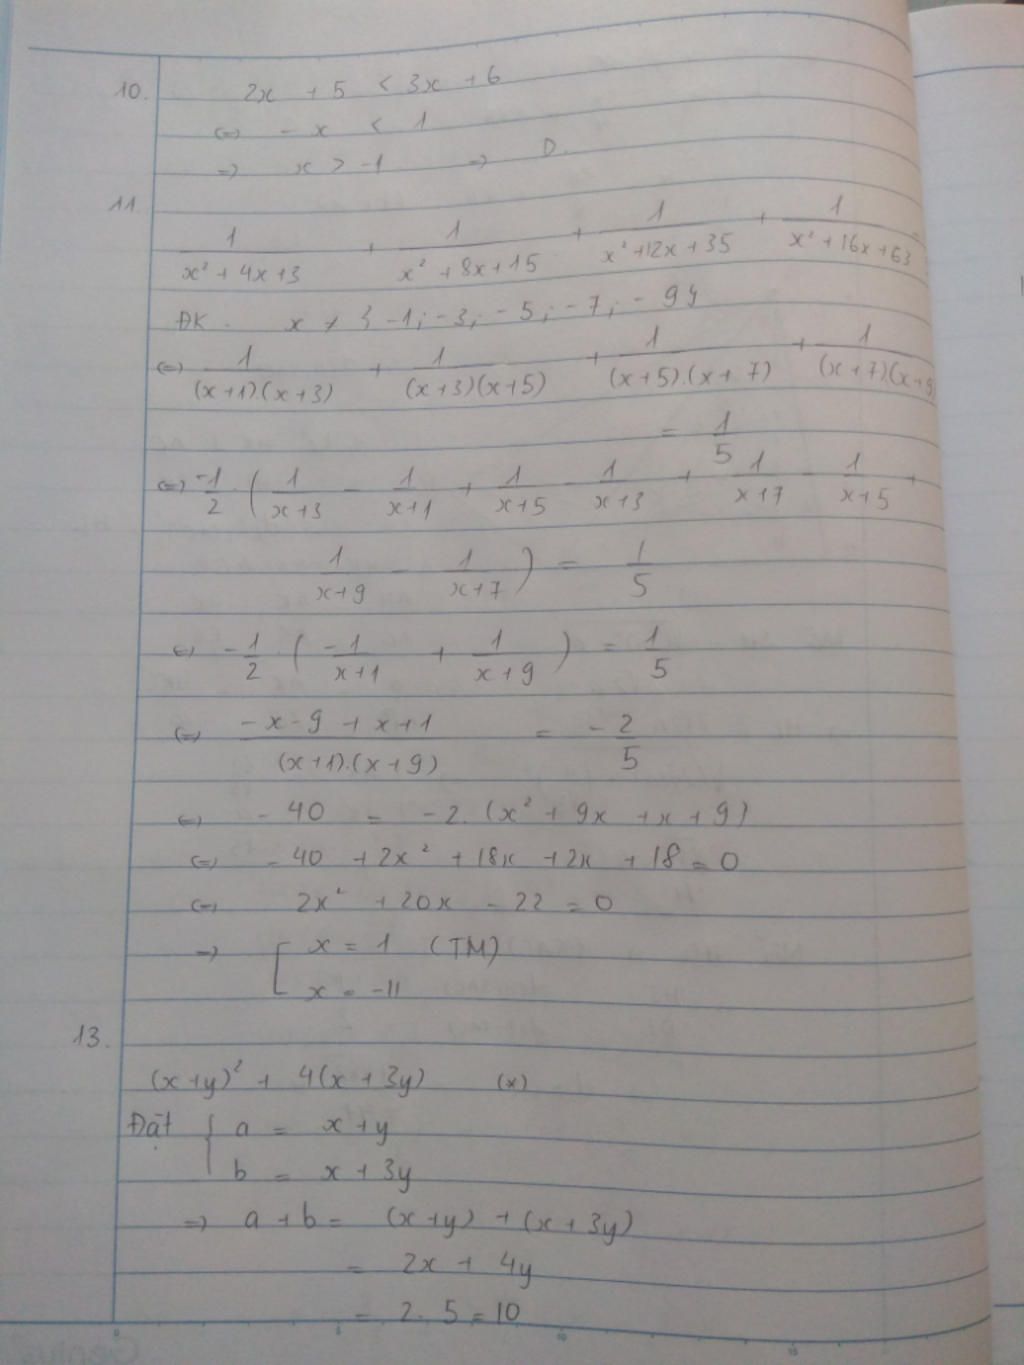 10. 2x + 5 < 3x + 6
<=> - x < 1
=> x > -1 => D.
11.
1/(x² + 4x + 3) + 1/(x² + 8x + 15) + 1/(x² + 12x + 35) + 1/(x² + 16x + 63) =
ĐK. x ≠ {-1; -3; -5; -7; -9}
<=> 1/((x+1).(x+3)) + 1/((x+3)(x+5)) + 1/((x+5).(x+7)) + 1/((x+7).(x+9))
= 1/5
<=> -1/2 . (1/(x+3) - 1/(x+1) + 1/(x+5) - 1/(x+3) + 1/(x+7) - 1/(x+5) +
1/(x+9) - 1/(x+7)) = 1/5
<=> -1/2 . (-1/(x+1) + 1/(x+9)) = 1/5
<=> (-x - 9 + x + 1)/((x+1).(x+9)) = -2/5
<=> - 40 = -2. (x² + 9x + x + 9)
<=> - 40 + 2x² + 18x + 2x + 18 = 0
<=> 2x² + 20x - 22 = 0
=> [ x = 1 (TM)
x = -11
13.
(x+y)² + 4(x + 3y) (*)
Đặt { a = x + y
b = x + 3y
=> a + b = (x+y) + (x + 3y)
= 2x + 4y
= 2. 5 = 10
Genius
0 5 10 15